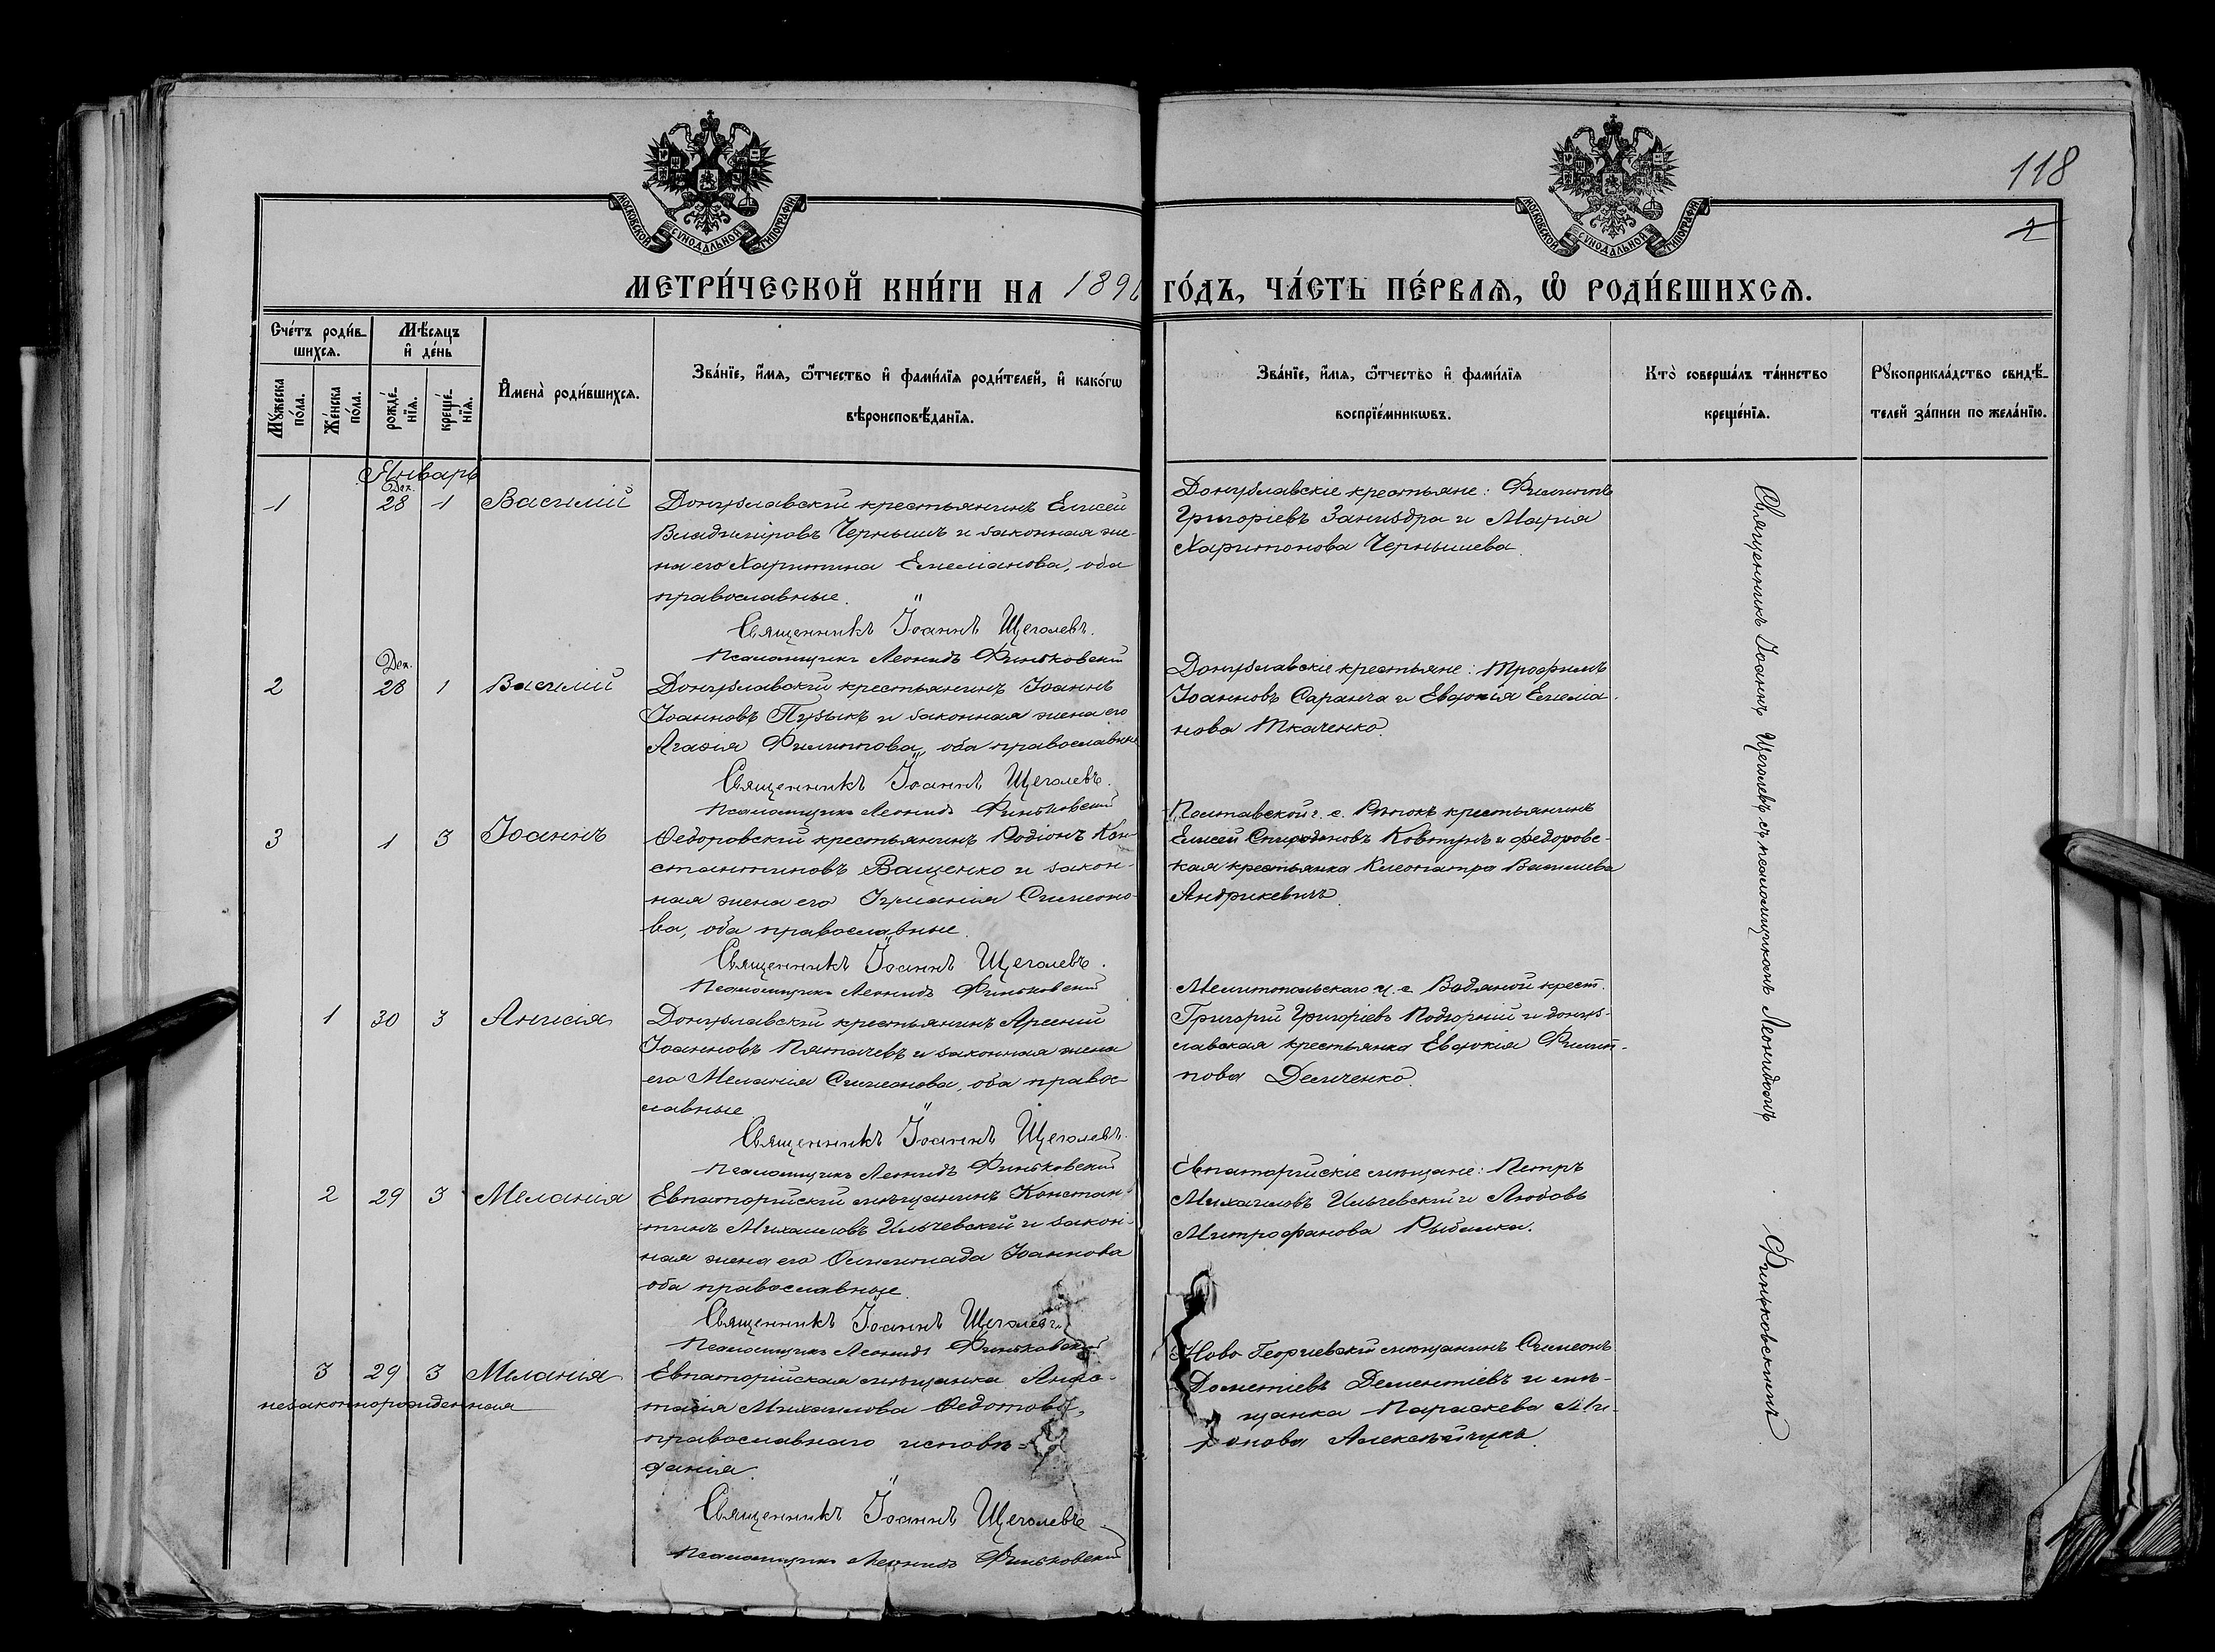 118
2
МОСКОВСКОЙ СѴНОДАЛЬНОЙ ТИПОГРАФІИ
МОСКОВСКОЙ СѴНОДАЛЬНОЙ ТИПОГРАФІИ
МЕТРИ́ЧЕСКОЙ КНИ́ГИ НА 189
ГО́ДЪ, ЧА́СТЬ ПЕ́РВАЯ, Ѡ РОДИ́ВШИХСЯ.
Сче́тъ роди́в-
шихся.
Мѣ́сяцъ
и де́нь
Мꙋ́жеска по́ла.
Же́нска по́ла.
рожде́-нїя.
креще́-нїя.
Имена̀ роди́вшихся.
Зва́нїе, и́мя, ѻ҆́тчество и фами́лїя роди́телей, и како́гѡ
вѣроисповѣ́данїя.
Зва́нїе, и́мя, ѻ҆́тчество и фами́лїя
воспрїе́мникѡвъ.
Кто̀ соверша́лъ та́инство
креще́нїя.
Рꙋкоприкла́дство свидѣ́-
телей за́писи по жела́нїю.
Январь
Дек.
1 28 1 Василій
Донузлавскій крестьянинъ Елисей
Владиміровъ Чернышъ и законная же-
на его Харитина Емеліанова, оба
православные.
Священникъ Іоаннъ Щеголевъ.
Псаломщикъ Леонидъ Финьковскій
Донузлавскіе крестьяне: Филиппъ
Григоріевъ Заниздра и Марія
Харитонова Чернышева.
Дек.
2 28 1 Василій
Донузлавскій крестьянинъ Іоаннъ
Іоанновъ Пузыкъ и законная жена его
Агафія Филиппова, оба православные
Священникъ Іоаннъ Щеголевъ.
Псаломщикъ Леонидъ Финьковскій
Донузлавскіе крестьяне: Трофимъ
Іоанновъ Саранча и Евдокія Емелиа-
нова Ткаченко.
3 1 3 Іоаннъ
Ѳедоровскій крестьянинъ Родіонъ Кон-
стантиновъ Ващенко и закон-
ная жена его Іуліанія Симеоно-
ва, оба православные.
Священникъ Іоаннъ Щеголевъ.
Псаломщикъ Леонидъ Финьковскій
Полтавской г. с. крестьянинъ
Елисей Спиридоновъ Ковтунъ и федоровс-
кая крестьянка Клеопатра Василиева
Андрикевичъ.
1 30 3 Анисія
Донузлавскій крестьянинъ Арсеній
Іоанновъ Пятачевъ и законная жена
его Меланія Симеонова, оба правос-
лавные
Священникъ Іоаннъ Щеголевъ.
Псаломщикъ Леонидъ Финьковскій
Мелитопольскаго у. с. Водяной крест.
Григорій Григоріевъ Подгорній и донуз-
лавская крестьянка Евдокія Филип-
пова Демченко.
2 29 3 Меланія
Евпаторійскій мѣщанинъ Констан-
тинъ Михаиловъ Ильчевскій и закон-
ная жена его Олимпіада Іоаннова
оба православные.
Священникъ Іоаннъ Щеголевъ
Псаломщикъ Леонидъ Финьковскій
Евпаторійскіе мѣщане: Петръ
Михаиловъ Ильчевскій и Любовь
Митрофанова Рыбалка.
3 29 3 Меланія
незаконнорожденная
Евпаторійская мѣщанка Анас-
тасія Михаилова Ѳедотова,
православнаго исповѣ-
данія.
Священникъ Іоаннъ Щеголевъ
Псаломщикъ Леонидъ Финьковскій
Ново-Георгіевскій мѣщанинъ Симеонъ
Дометіевъ Дементіевъ и мѣ-
щанка Параскева Ми-
ронова
Священникъ Іоаннъ Щеголевъ съ псаломщикомъ Леонидомъ Финьковскимъ